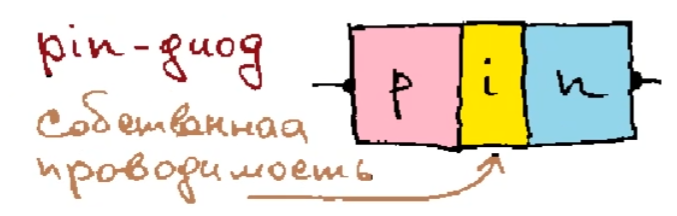 pin-диод
p i n
Собственная
проводимость